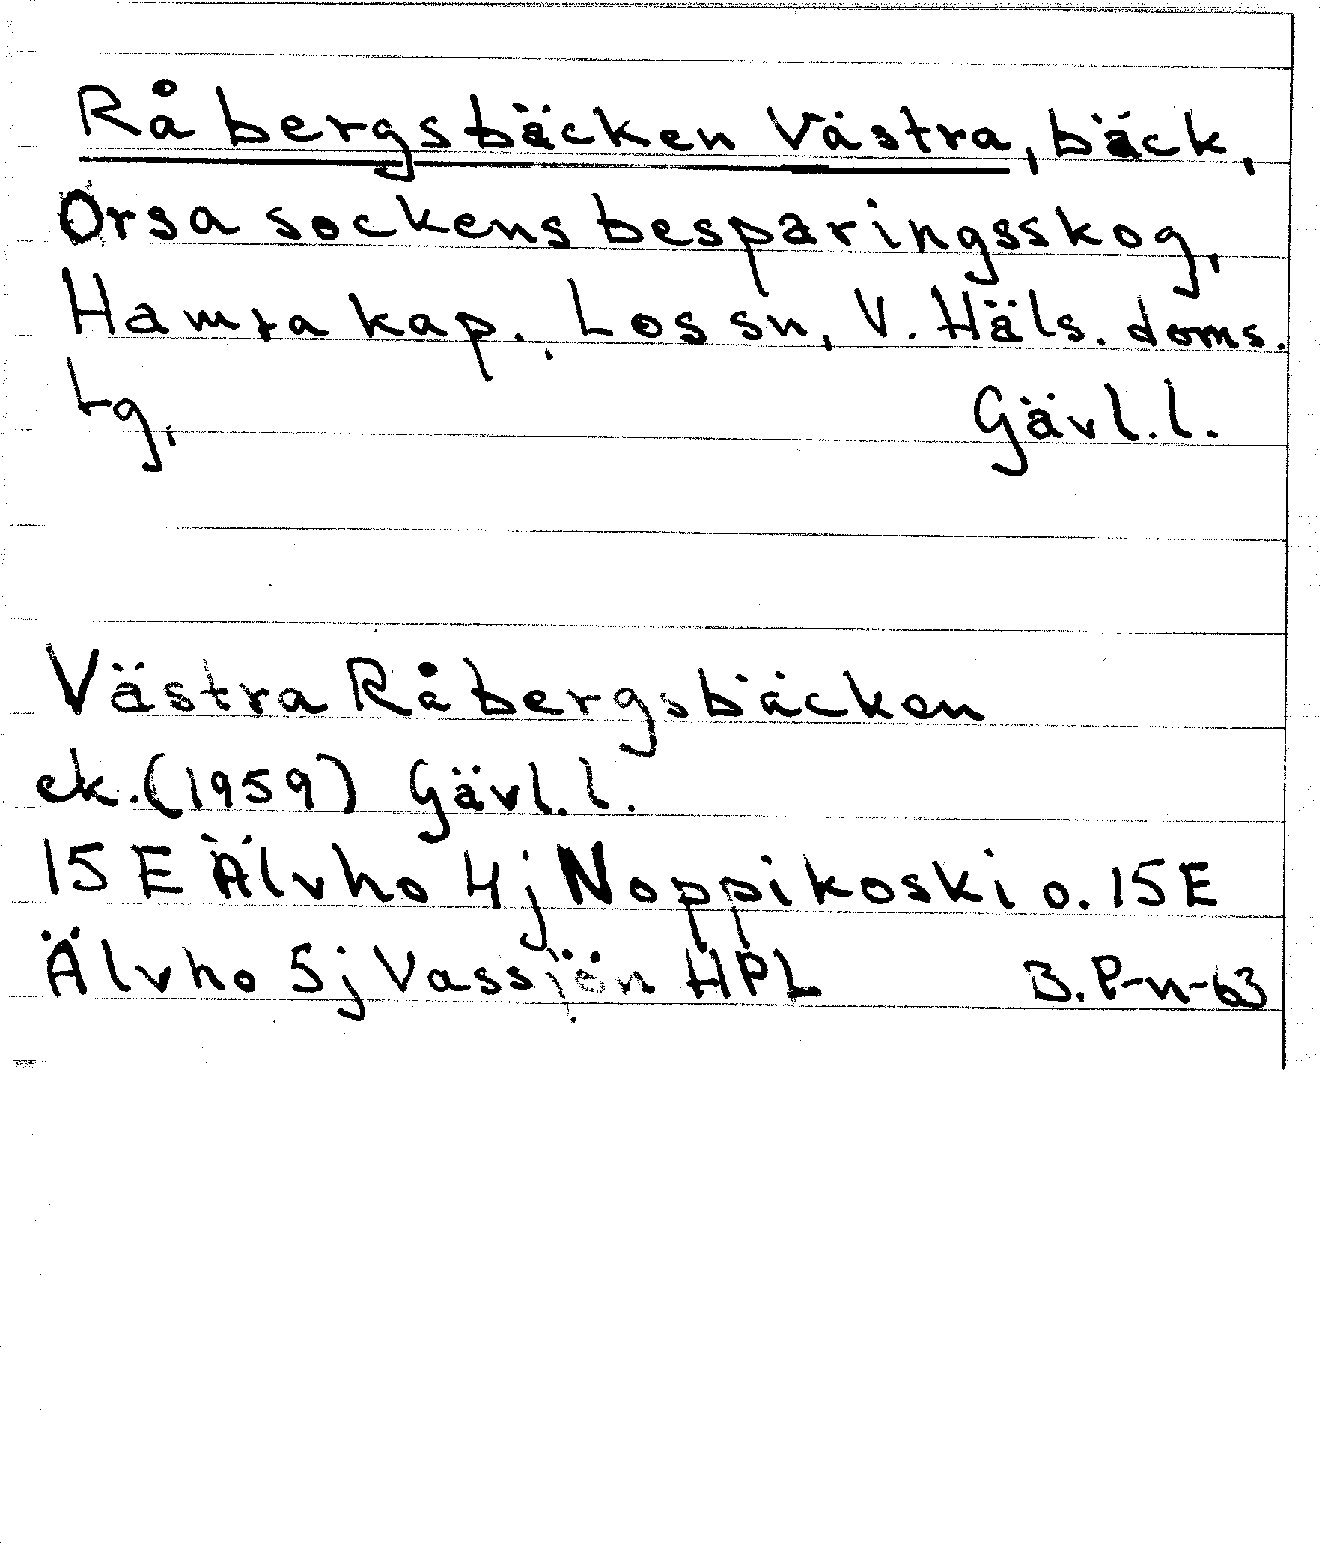 Råbergsbäcken Västra, bäck,
Orsa sockens besparingsskog,
Hamra kap., Los sn, V. Häls. doms.
tg,
Gävl.l.
Västra Råbergsbäcken
ek. (1959) Gävl.l.
15 E Älvho 4j Noppikoski o. 15E
Älvho 5j Vassjön HPL
B.P-n-63